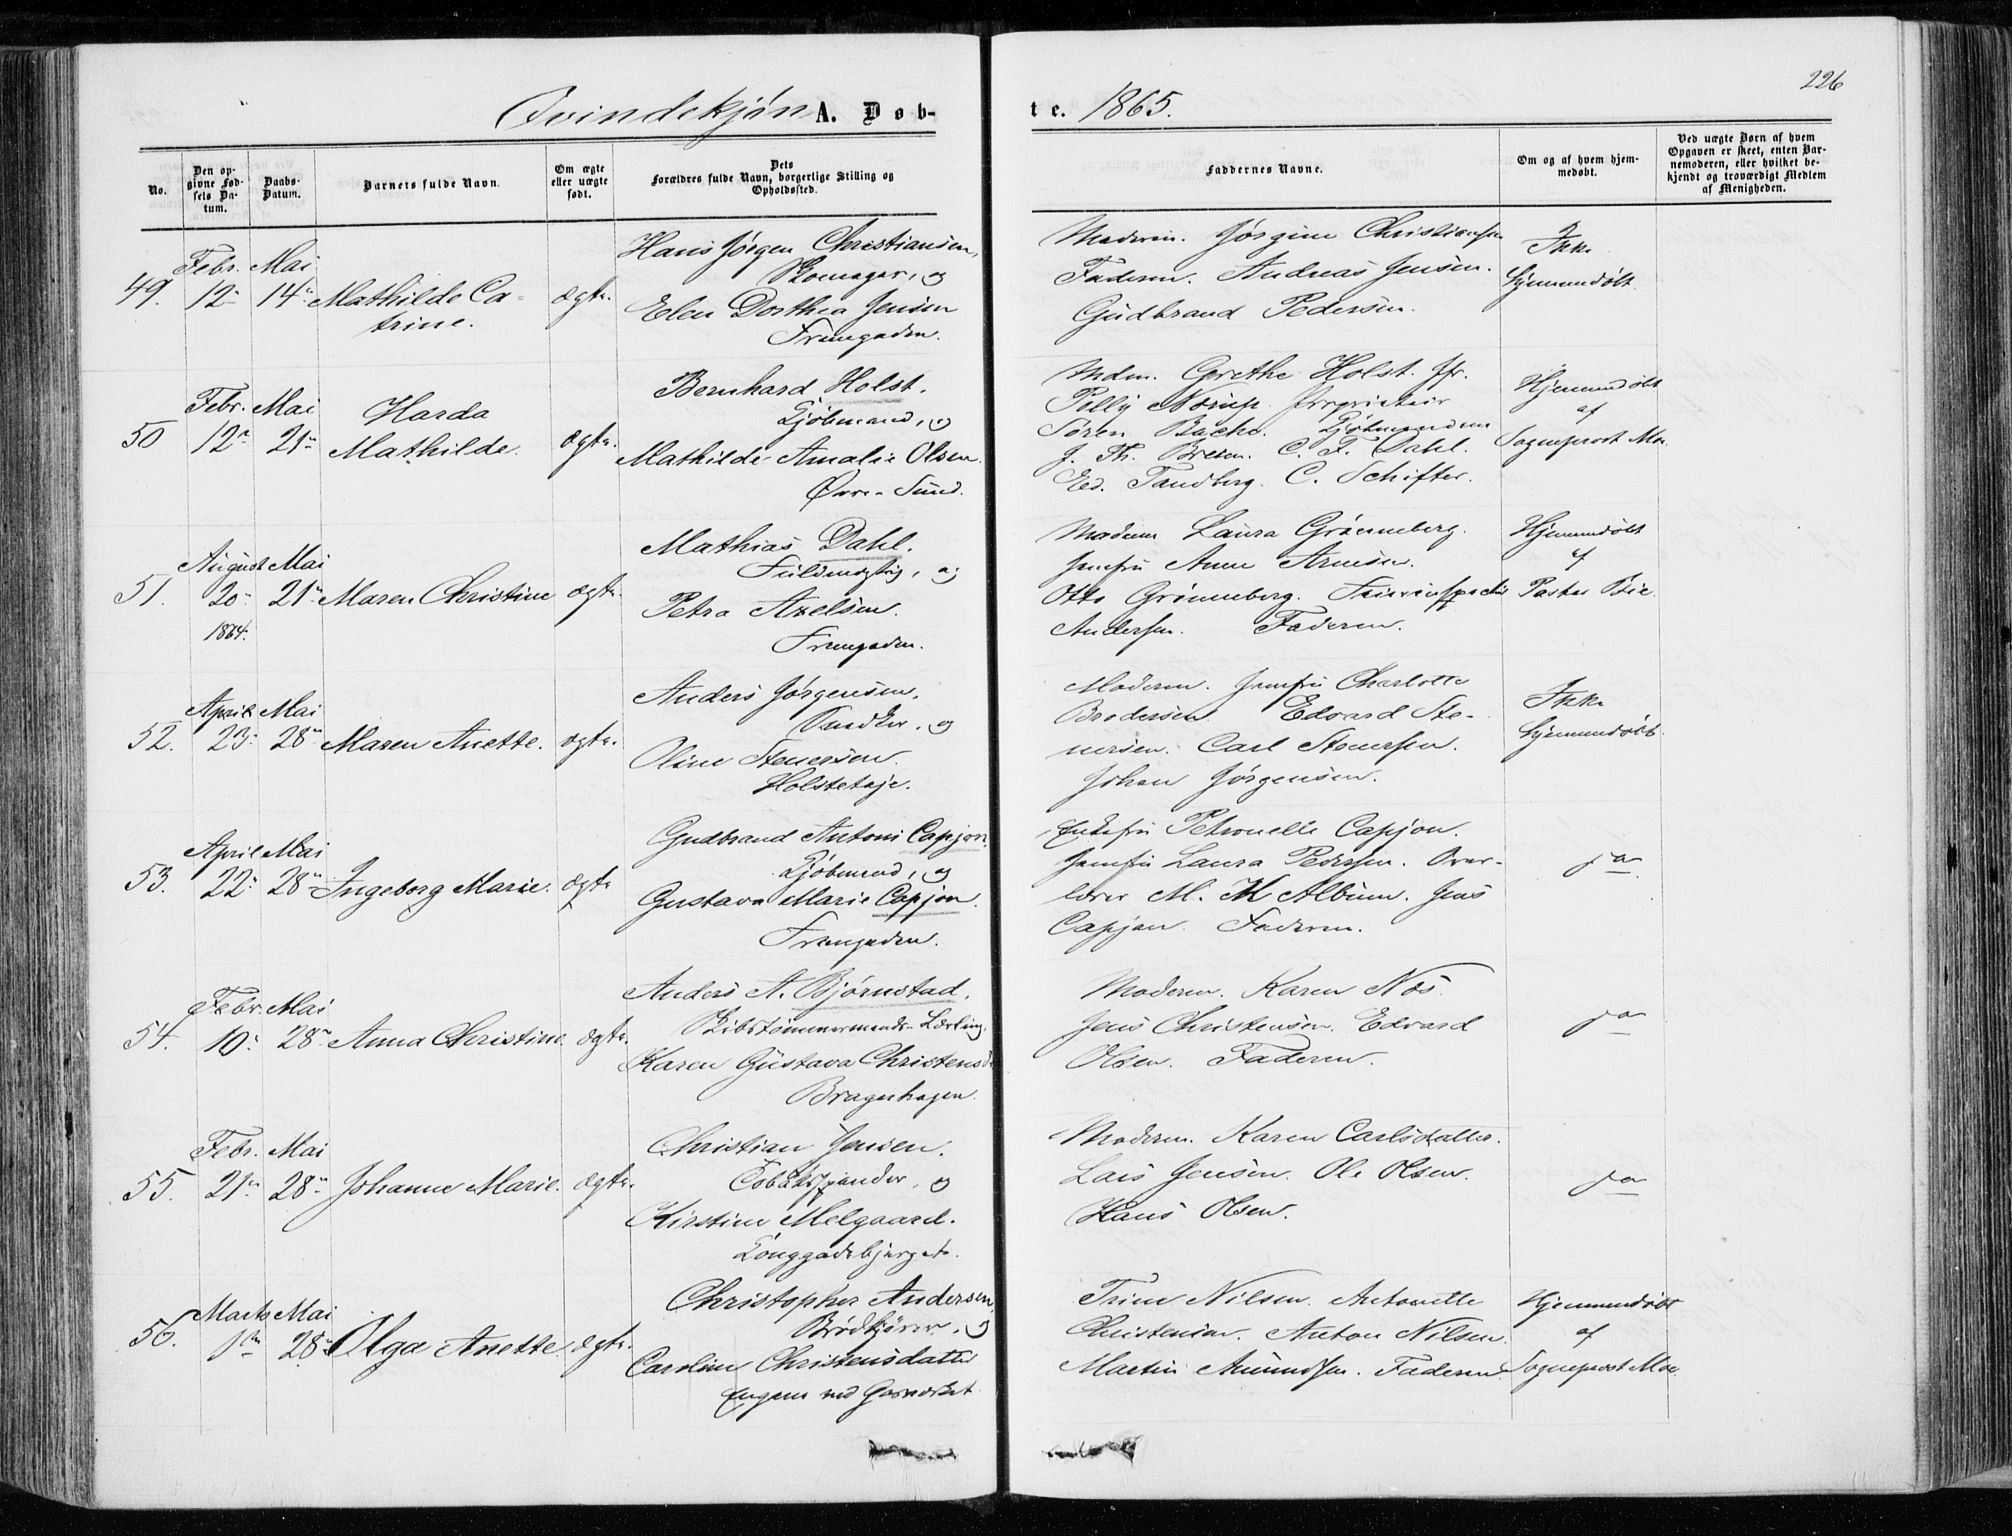 226
Qvindekjøn A. Døb-
te. 1865.
No.
Den op-
givne Fød-
sels Da-
tum.
Daabs-
Datum.
Barnets fulde Navn.
Om ægte
eller uægte
født.
Dets
Forældres fulde Navn, borgerlige Stilling og
Opholdssted.
Faddernes Navne.
Om og af hvem hjem-
medøbt.
Ved uægte Børn af hvem
Opgaven er skeet, enten Bar-
nemoderen, eller hvilket be-
kjendt og troværdigt Medlem
af Menigheden.
49.
Febr.
12
Mai
14
Mathilde Ca-
trine.
ægte.
Hans Jørgen Christiansen,
Skomager, og
Elen Dorthea Jensen
Strømgaden.
Moderen. Jørgine Christiansen
Faderen. Andreas Jensen.
Gudbrand Pedersen.
Ikke
hjemmedøbt
50
Febr.
12
Mai
21
Harda
Mathilde.
ægte.
Bernhard Holst.
Kjøbmand, og
Mathilde Amalie Olsen.
Øvre-Sund.
Mdm. Grethe Holst. Jfr.
Pelly Nærup. Proprietair
Søren Bache. Kjøbmændene
J. Th. Bresen. C. F. Dahl.
Ed. Tandberg. C. Schifter.
Hjemmedøbt
af
Sogneprest Moe
51.
August
20
1864.
Mai
21
Maren Christine
ægte.
Mathias Dahl.
Fuldmægtig, og
Petra Axelsen.
Strømgaden.
Madam Laura Grønneberg.
Jomfru Anne Arnesen.
Otto Grønneberg.
Andersen. Faderen.
Hjemmedøbt
af
Pastor Bie.
52.
April
23
Mai
28
Maren Anette.
ægte.
Anders Jørgensen.
Snedker, og
Oline Stenersen.
Holsteteje.
Moderen. Jomfru Charlotte
Brodersen. Edvard Ste-
nersen. Carl Stenersen.
Johan Jørgensen.
Ikke
hjemmedøbt.
53.
April
22
Mai
28
Ingeborg Marie.
ægte
Gudbrand Antoni Capjon
Kjøbmand, og
Gustava Marie Capjon.
Strømgaden.
Enkefru Petronelle Capjon.
Jomfru Laura Pedersen. Over-
lærer M. M Album. Jens
Capjon. Faderen.
ja
54.
Febr.
10
Mai
28
Anna Christine.
ægte.
Anders A. Bjørnstad.
Skibstømmermands-Lærling
Karen Gustava Christensd.
Bragenhagen.
Moderen. Karen Næs.
Jens Christensen. Edvard
Olsen. Faderen.
ja
55.
Febr.
21
Mai
28
Johanne Marie.
ægte.
Christian Jensen.
Tobaksspinder, og
Kirstine Melgaard.
Langgadebjerget.
Moderen. Karen Carlsdatter.
Lars Jensen. Ole Olsen.
Hans Olsen.
ja
56.
Marts
1
Mai
28
Olga Anette
ægte.
Christopher Andersen
Brødkjører, og
Caroline Christensdatter
Engene ved Gasværket
Trine Nilsen. Antonette
Christensen. Anton Nilsen.
Martin Amundsen. Faderen.
Hjemmedøbt
af
Sogneprest Moe